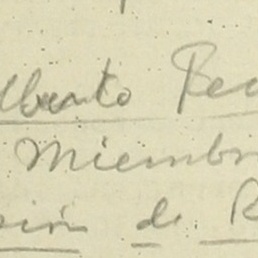 lberto Re
Miembr
sión de R